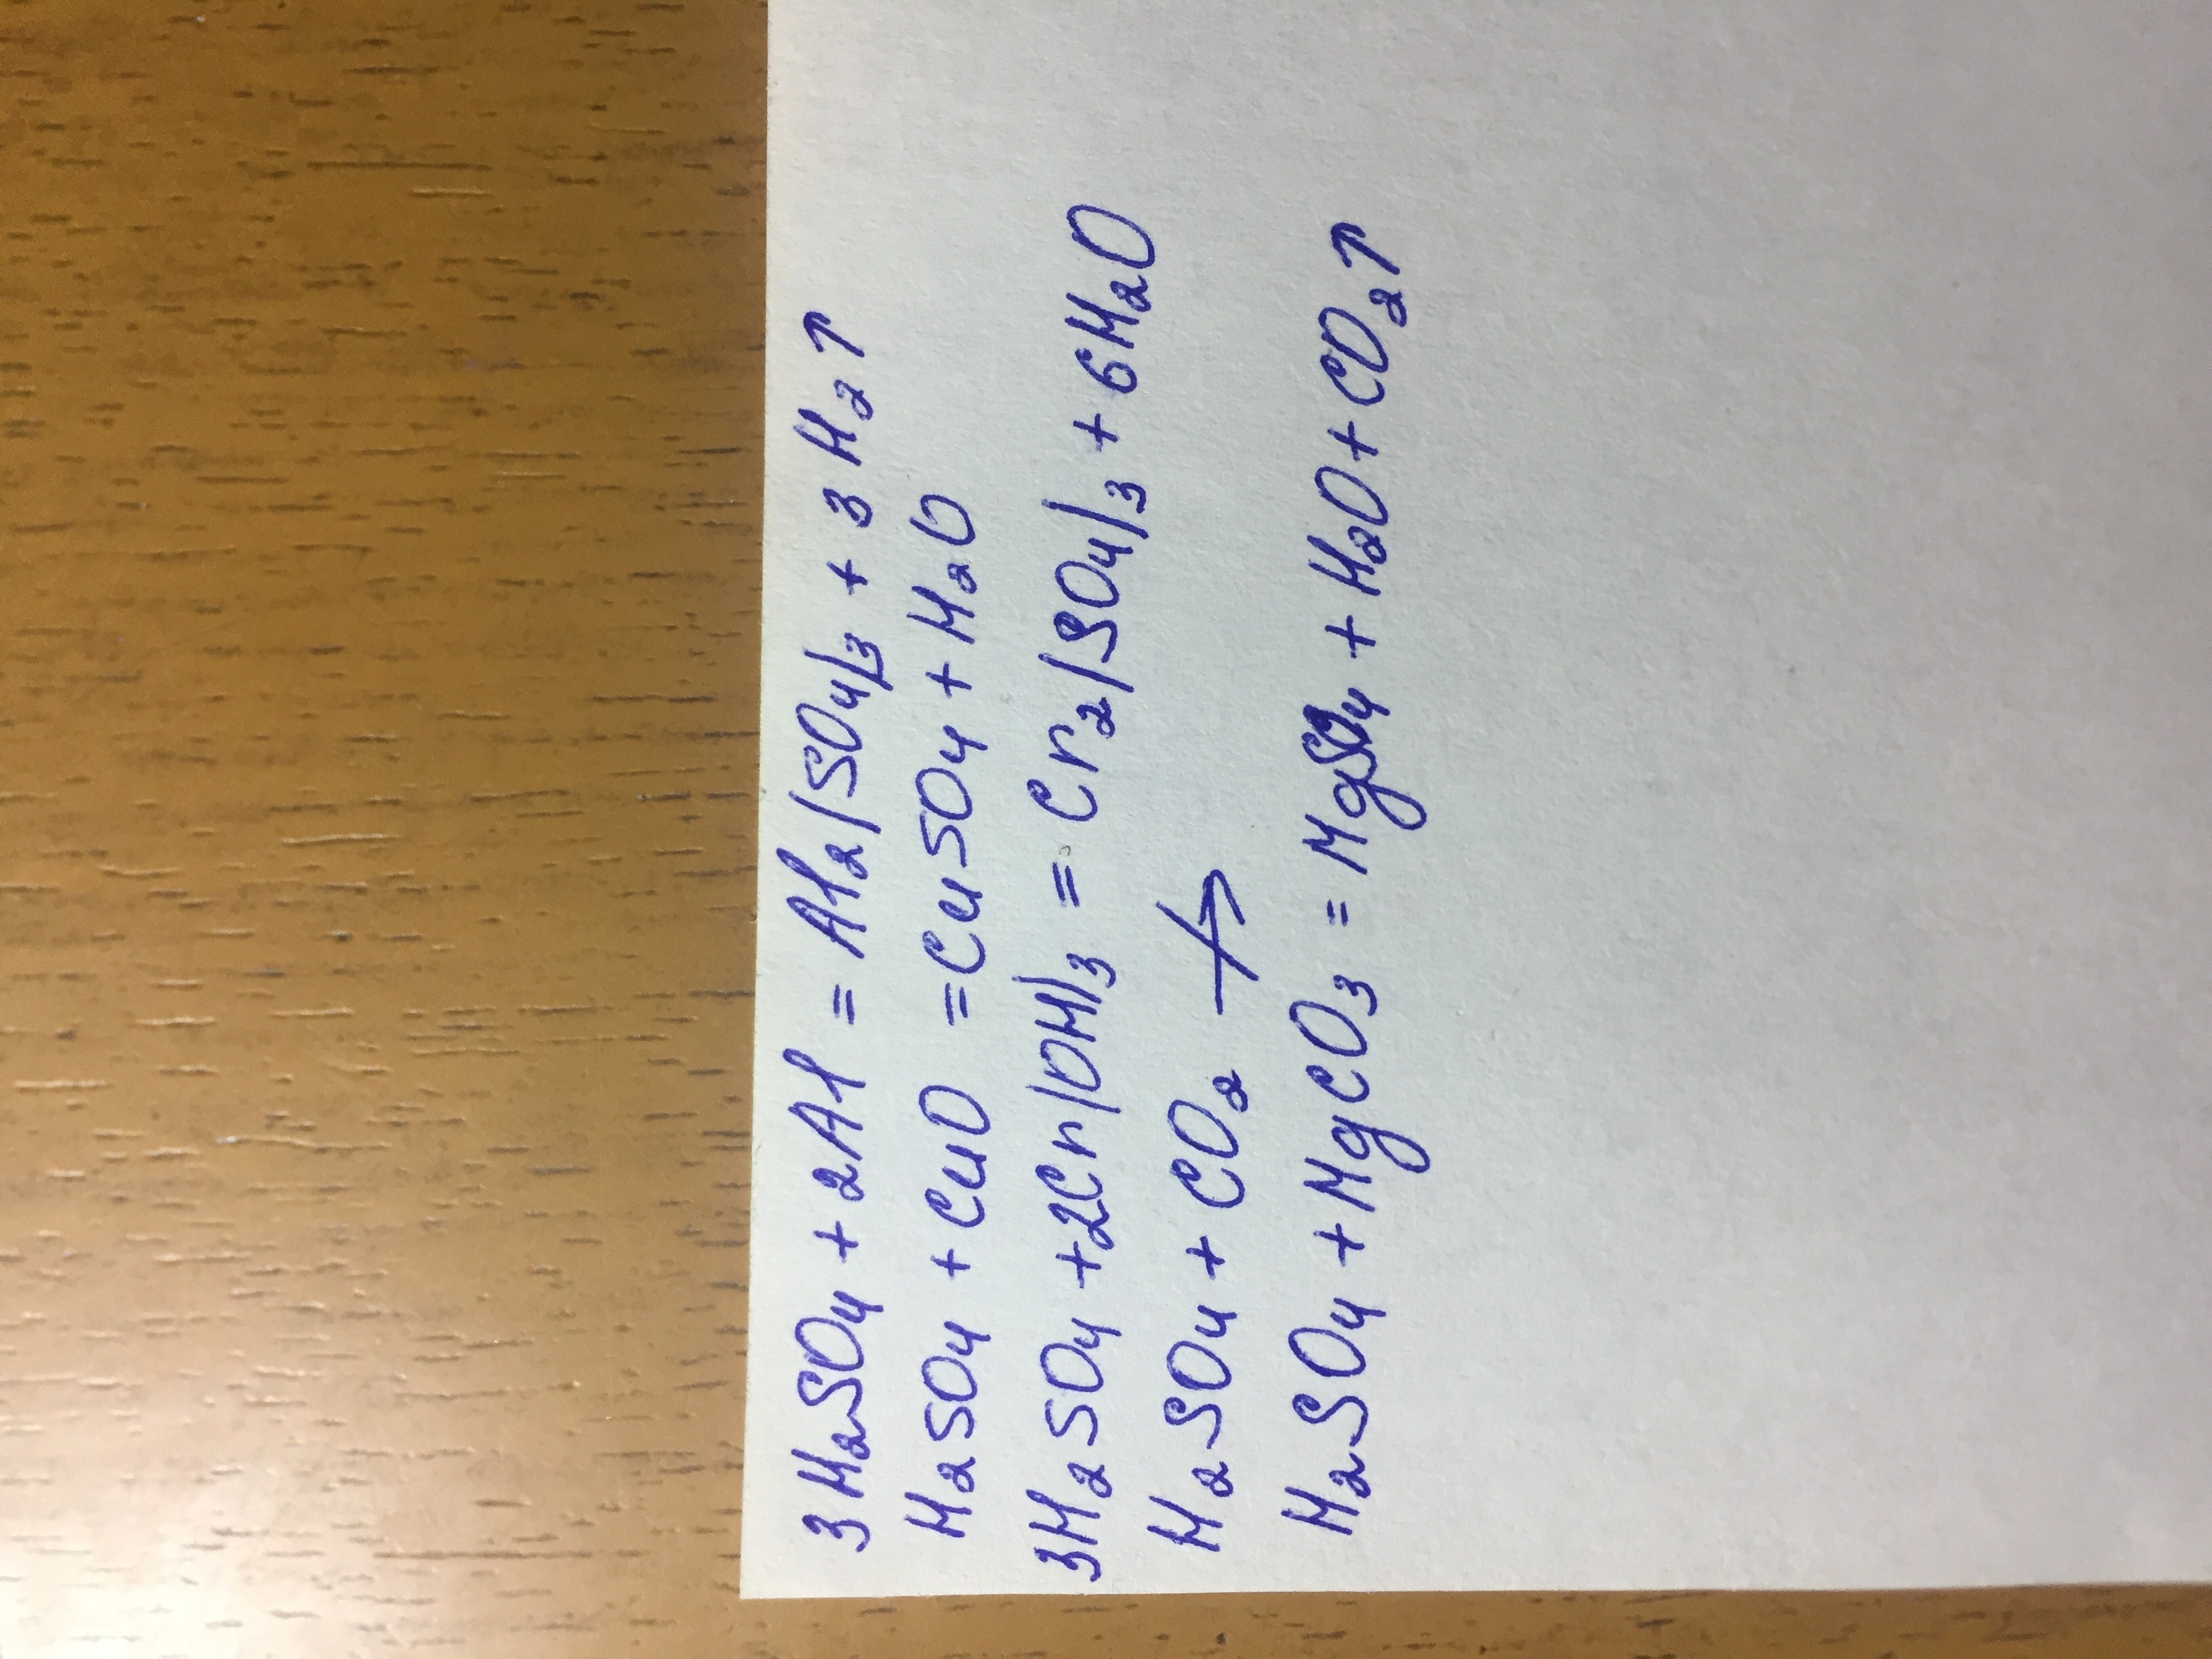 3H₂SO₄ + 2Al = Al₂(SO₄)₃ + 3H₂↑
H₂SO₄ + CuO = CuSO₄ + H₂O
3H₂SO₄ + 2Cr(OH)₃ = Cr₂(SO₄)₃ + 6H₂O
H₂SO₄ + CO₂ ↛
H₂SO₄ + MgCO₃ = MgSO₄ + H₂O + CO₂↑